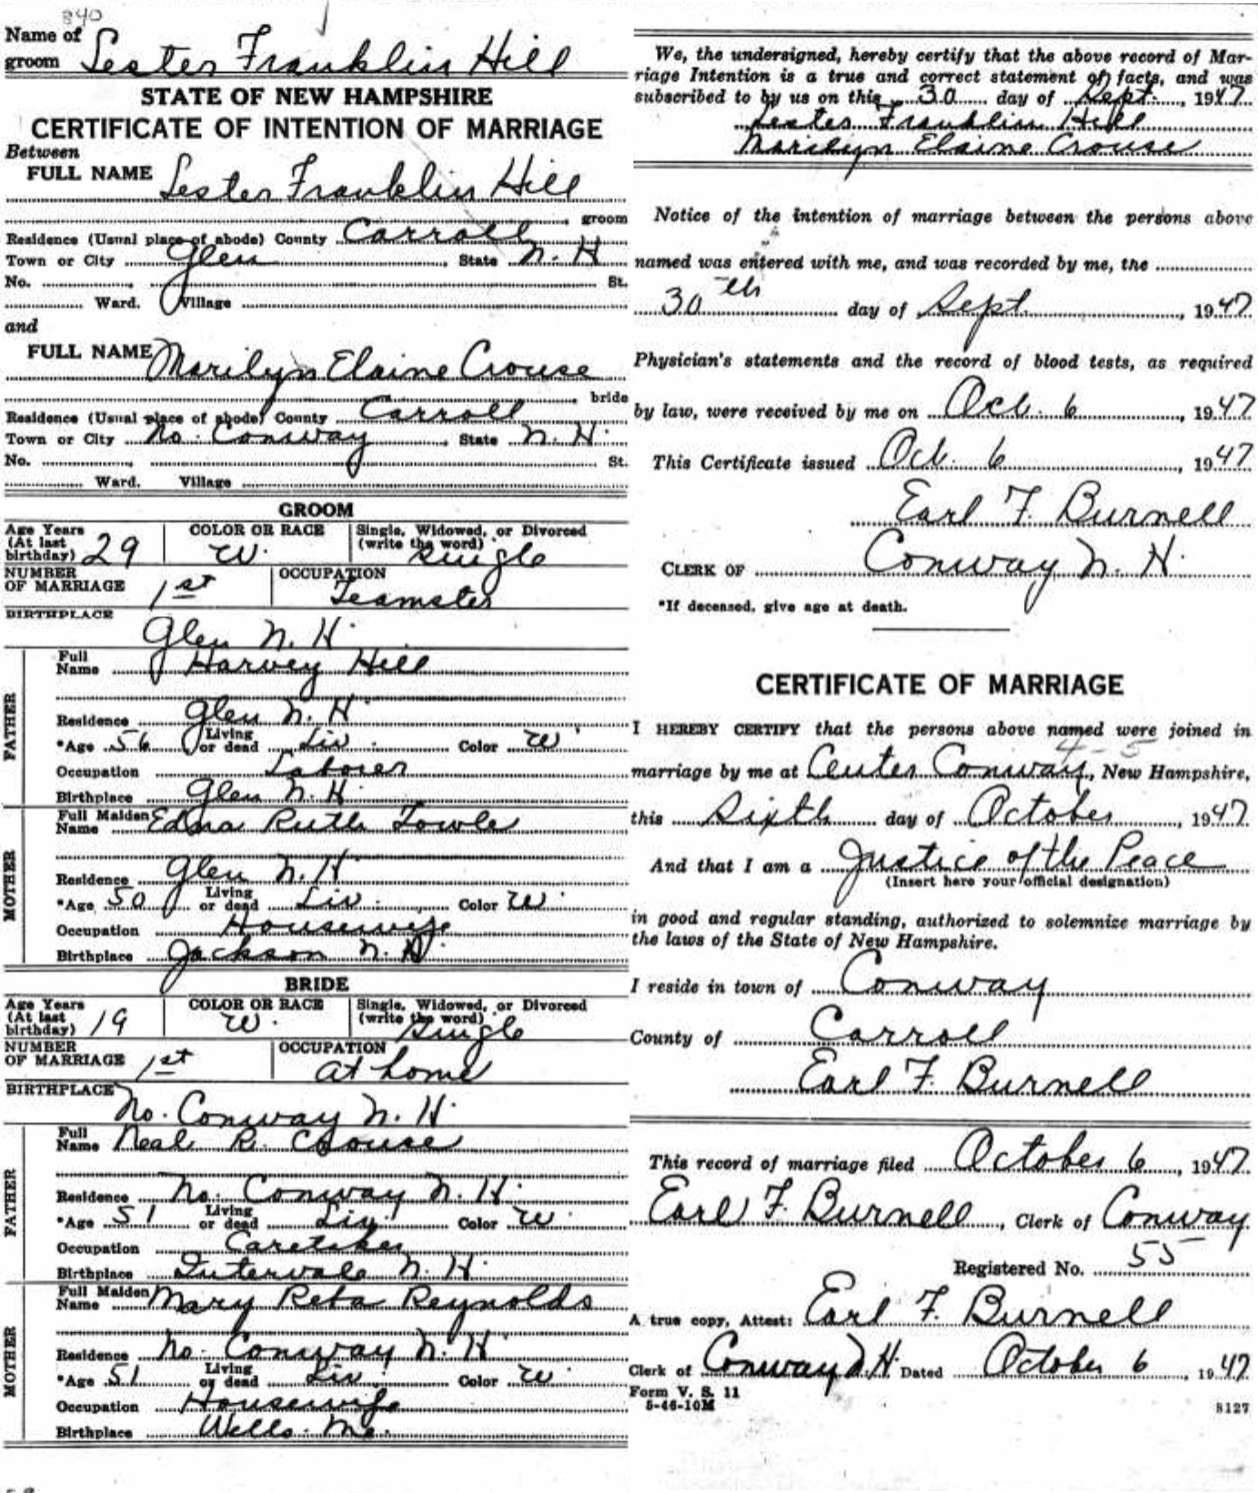 840
Name of groom Lester Franklin Hill
STATE OF NEW HAMPSHIRE
CERTIFICATE OF INTENTION OF MARRIAGE
Between
FULL NAME Lester Franklin Hill
groom
Residence (Usual place of abode) County Carroll
Town or City Glen State N. H
No. St.
Ward. Village
and
FULL NAME Marilyn Elaine Crouse
bride
Residence (Usual place of abode) County Carroll
Town or City No. Conway State N. H.
No. St.
Ward. Village
GROOM
Age Years (At last birthday) 29 COLOR OR RACE W. Single, Widowed, or Divorced (write the word) single
NUMBER OF MARRIAGE 1st OCCUPATION Teamster
BIRTHPLACE Glen N. H.
FATHER
Full Name Harvey Hill
Residence Glen N. H
*Age 56 Living or dead Liv. Color W
Occupation Laborer
Birthplace Glen N. H
MOTHER
Full Maiden Name Edna Ruth Towle
Residence Glen N. H
*Age 50 Living or dead Liv. Color W.
Occupation Housewife
Birthplace Jackson N. H
BRIDE
Age Years (At last birthday) 19 COLOR OR RACE W. Single, Widowed, or Divorced (write the word) single
NUMBER OF MARRIAGE 1st OCCUPATION at home
BIRTHPLACE No. Conway N. H.
FATHER
Full Name Neal R. Crouse
Residence No. Conway N. H.
*Age 51 Living or dead Liv. Color W.
Occupation Caretaker
Birthplace Intervale N. H.
MOTHER
Full Maiden Name Mary Reta Reynolds
Residence No. Conway N. H
*Age 51 Living or dead Liv. Color W.
Occupation Housewife
Birthplace Wells. Me.
We, the undersigned, hereby certify that the above record of Mar-
riage Intention is a true and correct statement of facts, and was
subscribed to by us on this 30 day of Sept. 1947
Lester Franklin Hill
Marilyn Elaine Crouse
Notice of the intention of marriage between the persons above
named was entered with me, and was recorded by me, the
30th day of Sept. 1947
Physician's statements and the record of blood tests, as required
by law, were received by me on Oct. 6, 1947
This Certificate issued Oct. 6, 1947
Earl F. Burnell
CLERK OF Conway N. H.
*If deceased, give age at death.
CERTIFICATE OF MARRIAGE
I HEREBY CERTIFY that the persons above named were joined in
4-5
marriage by me at Center Conway, New Hampshire,
this Sixth day of October, 1947
And that I am a Justice of the Peace
(Insert here your official designation)
in good and regular standing, authorized to solemnize marriage by
the laws of the State of New Hampshire.
I reside in town of Conway
County of Carroll
Earl F. Burnell
This record of marriage filed October 6, 1947
Earl F. Burnell, Clerk of Conway
Registered No. 55
A true copy, Attest: Earl F. Burnell
Clerk of Conway N. H. Dated October 6, 1947
Form V. S. 11
5-46-10M
8127